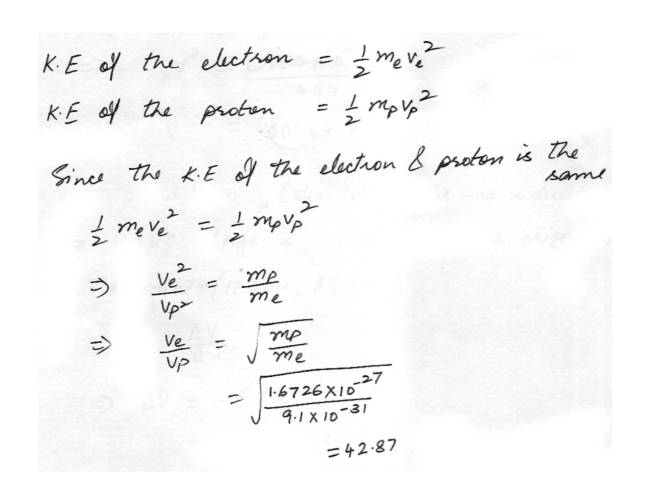 K.E of the electron = 1/2 mₑvₑ²
K.E of the proton = 1/2 mₚvₚ²
Since the K.E of the electron & proton is the same
1/2 mₑvₑ² = 1/2 mₚvₚ²
⇒ vₑ²/vₚ² = mₚ/mₑ
⇒ vₑ/vₚ = √(mₚ/mₑ)
= √(1.6726×10⁻²⁷/9.1×10⁻³¹)
=42.87